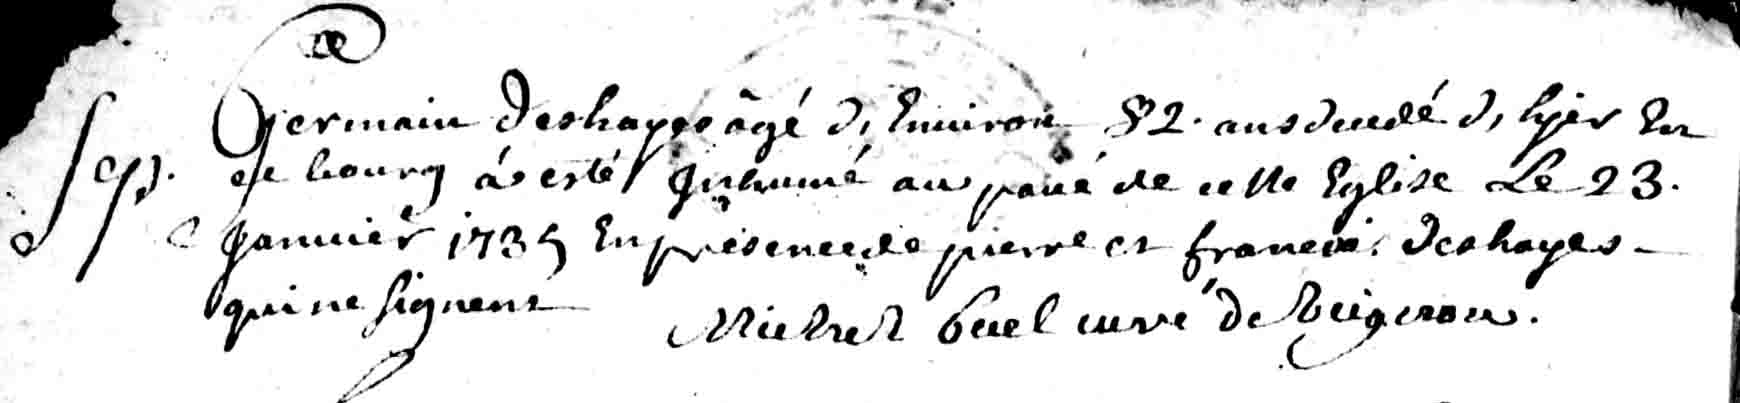 Sep. Germain Deshayes âgé d, Environ 82. ans decedé d, hyer En
ce bourg á esté Inhumé au pavé de cette Eglise Le 23.
Janvier 1735 En présence de pierre et francois Deshayes
qui ne signent Michel curé De